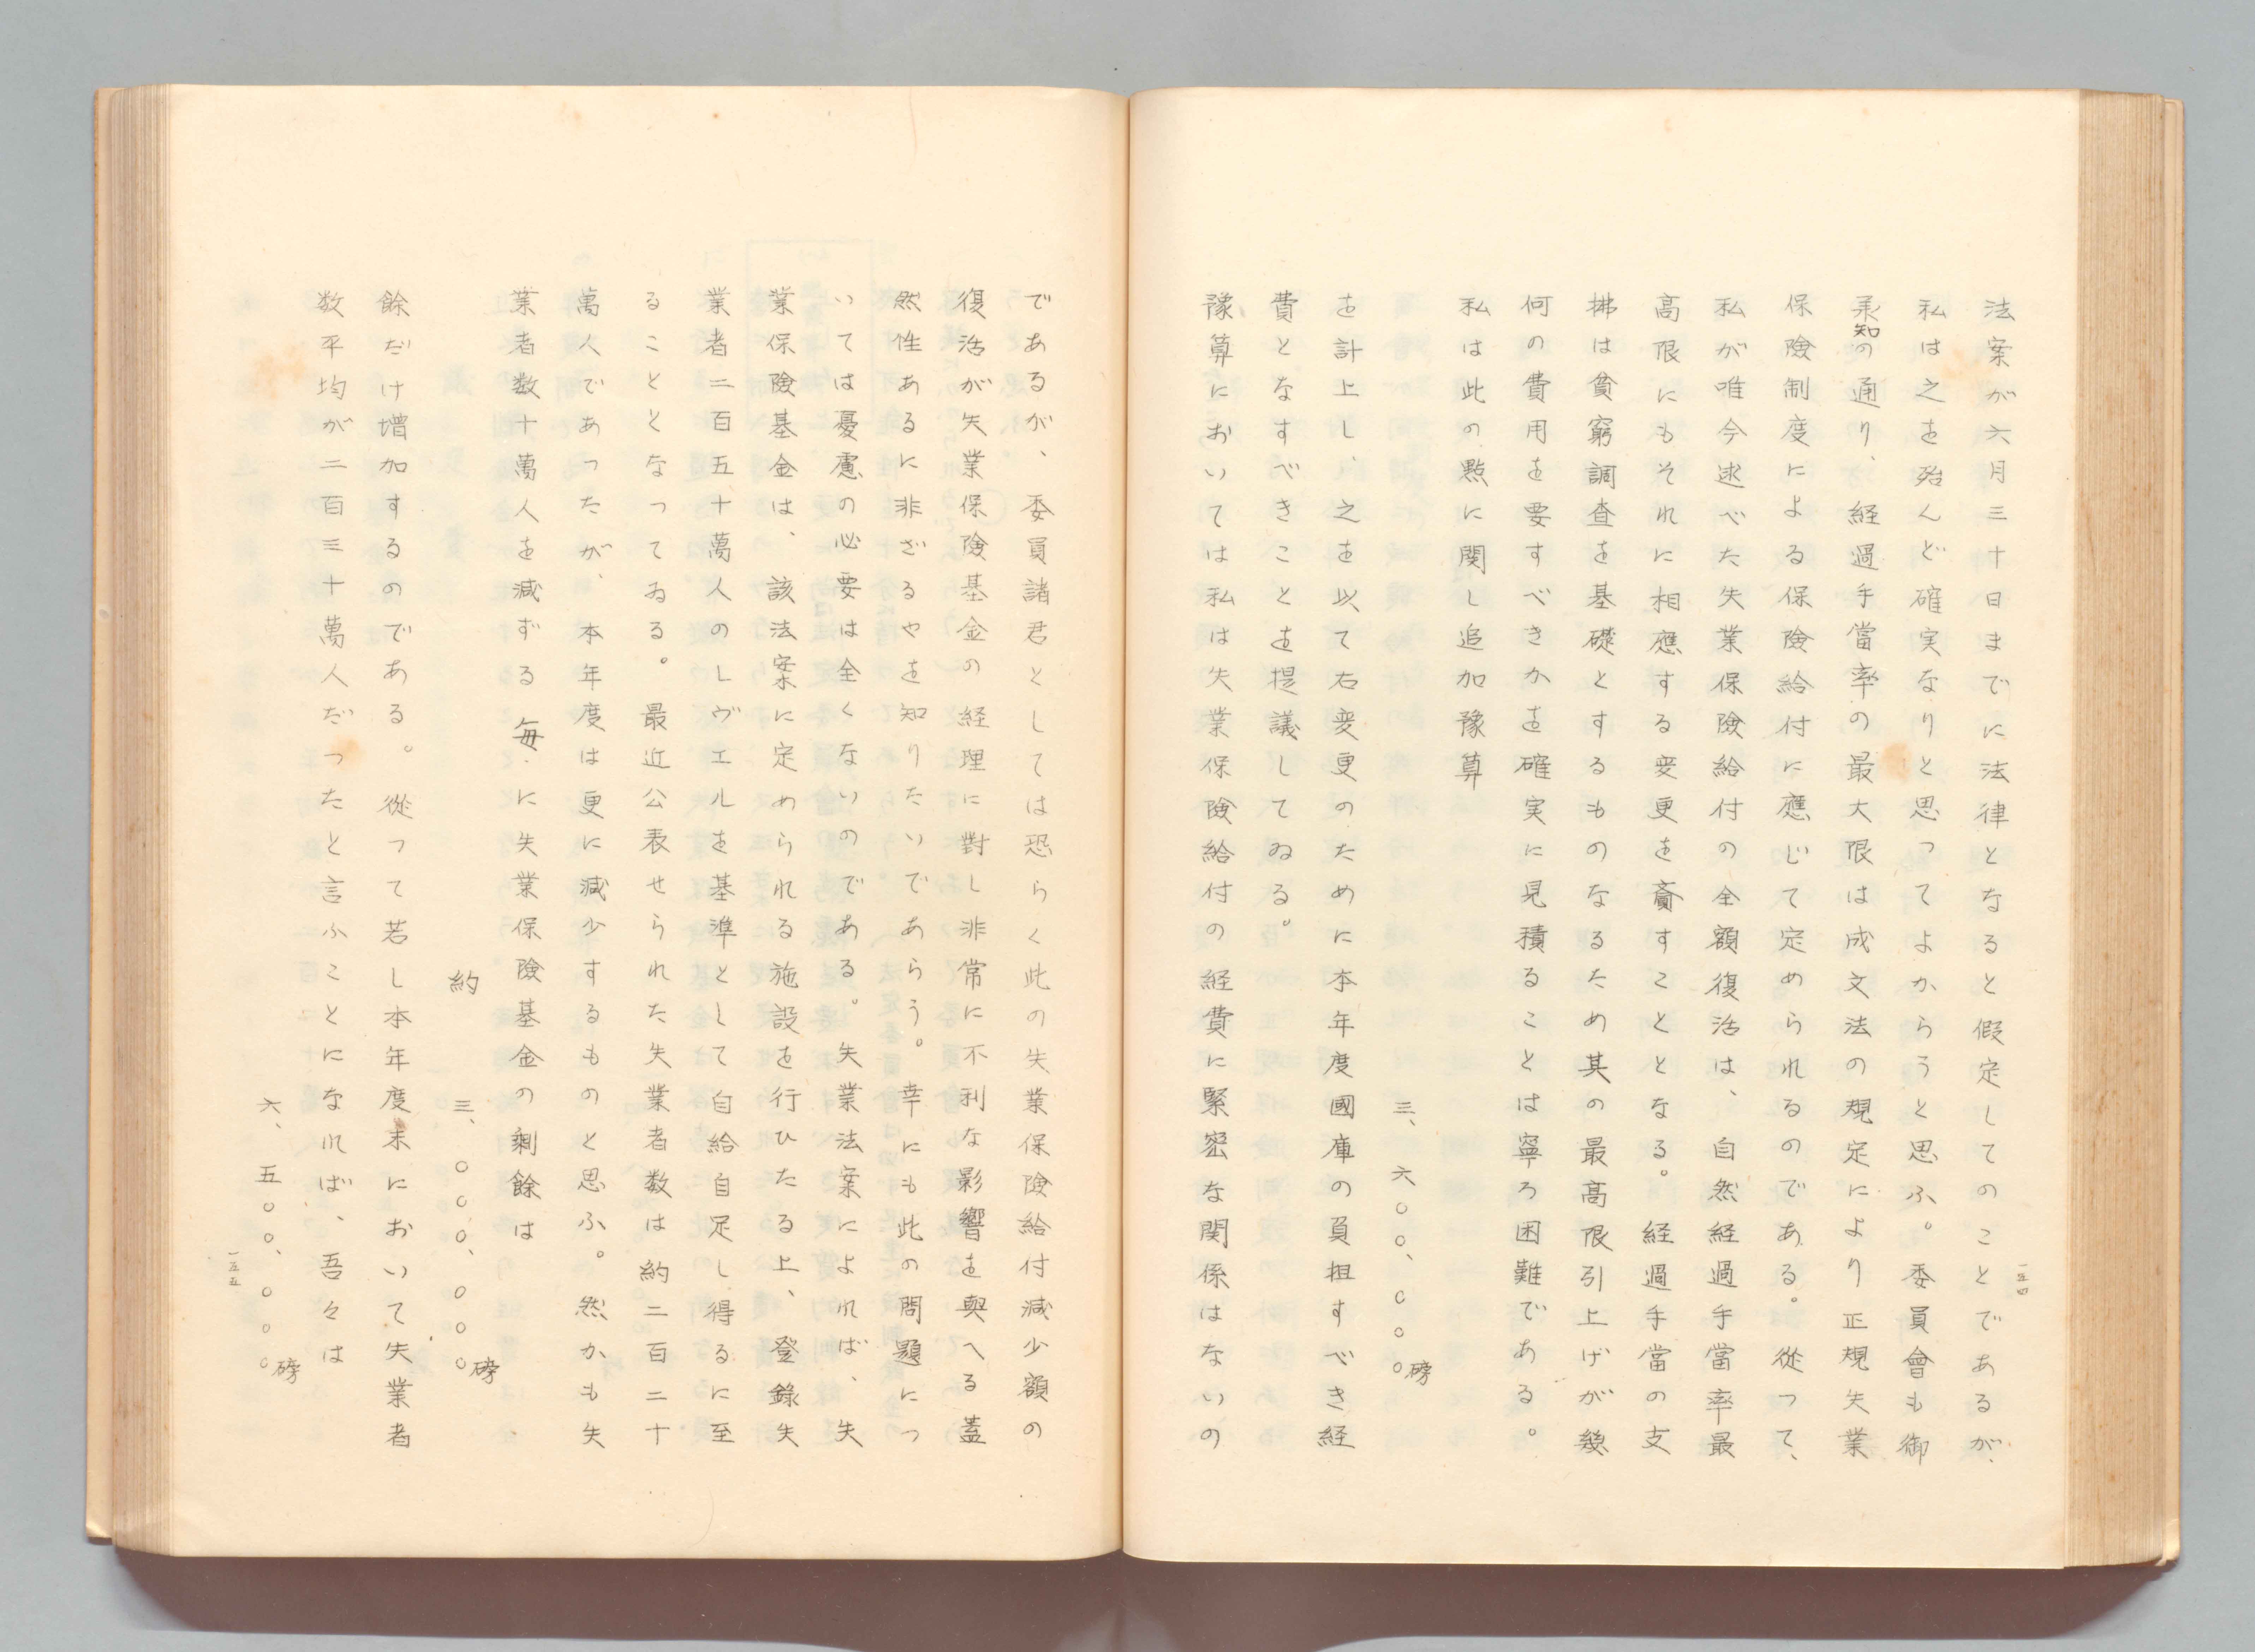 法案が六月三十日までに法律となると假定してのことであるが、
私は之を殆んど確実なりと思ってよからうと思ふ。委員會も御
承知の通り、経過手當率の最大限は成文法の規定により正規失業
保險制度による保險給付に應じて定められるのである。從って、
私が唯今述べた失業保險給付の全額復活は、自然経過手當率最
高限にもそれに相應する変更を齎すこととなる。経過手當の支
拂は貧窮調査を基礎とするものなるため其の最高限引上げが幾
何の費用を要すべきかを確実に見積ることは寧ろ困難である。
私は此の點に関し追加豫算
三、六〇〇、〇〇〇磅
を計上し、之を以て右変更のために本年度國庫の負担すべき経
費となすべきことを提議してゐる。
豫算においては私は失業保險給付の経費に緊密な関係はないの
一五四
であるが、委員諸君としては恐らく此の失業保險給付減少額の
復活が失業保險基金の経理に對し非常に不利な影響を與へる蓋
然性あるに非ざるやを知りたいであらう。幸にも此の問題につ
いては憂慮の必要は全くないのである。失業法案によれば、失
業保險基金は、該法案に定められる施設を行ひたる上、登錄失
業者二百五十萬人のレヴエルを基準として自給自足し得るに至
ることとなってゐる。最近公表せられた失業者数は約二百二十
萬人であったが、本年度は更に減少するものと思ふ。然かも失
業者数十萬人を減ずる毎に失業保險基金の剰餘は
約三、〇〇〇、〇〇〇磅
餘だけ増加するのである。從って若し本年度末において失業者
数平均が二百三十萬人だったと言ふことになれば、吾々は
六、五〇〇、〇〇〇磅
一五五